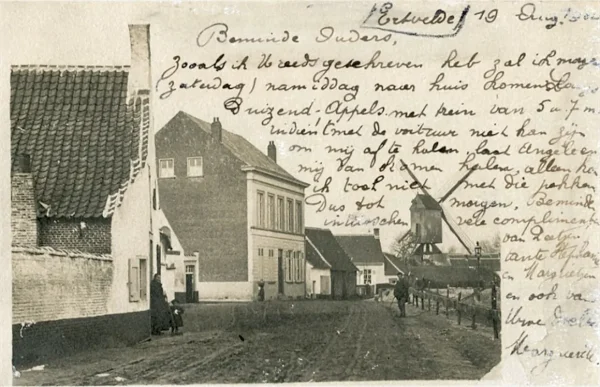 Ertvelde, 19 Aug.
Beminde Ouders,
Zooals ik U reeds geschreven heb zal ik morgen
zaterdag) namiddag naar huis komen langs
Duizend-Appels met trein van 5 u 7 m.
indien 't met de voituur niet kan zijn
om mij af te halen, laat
mij van komen halen, alleen kan
ik toch niet met die pakken
Dus tot morgen, Beminde
intusschen vele complimenten
van
tante
en
en ook van
Uwe
Marguerite.